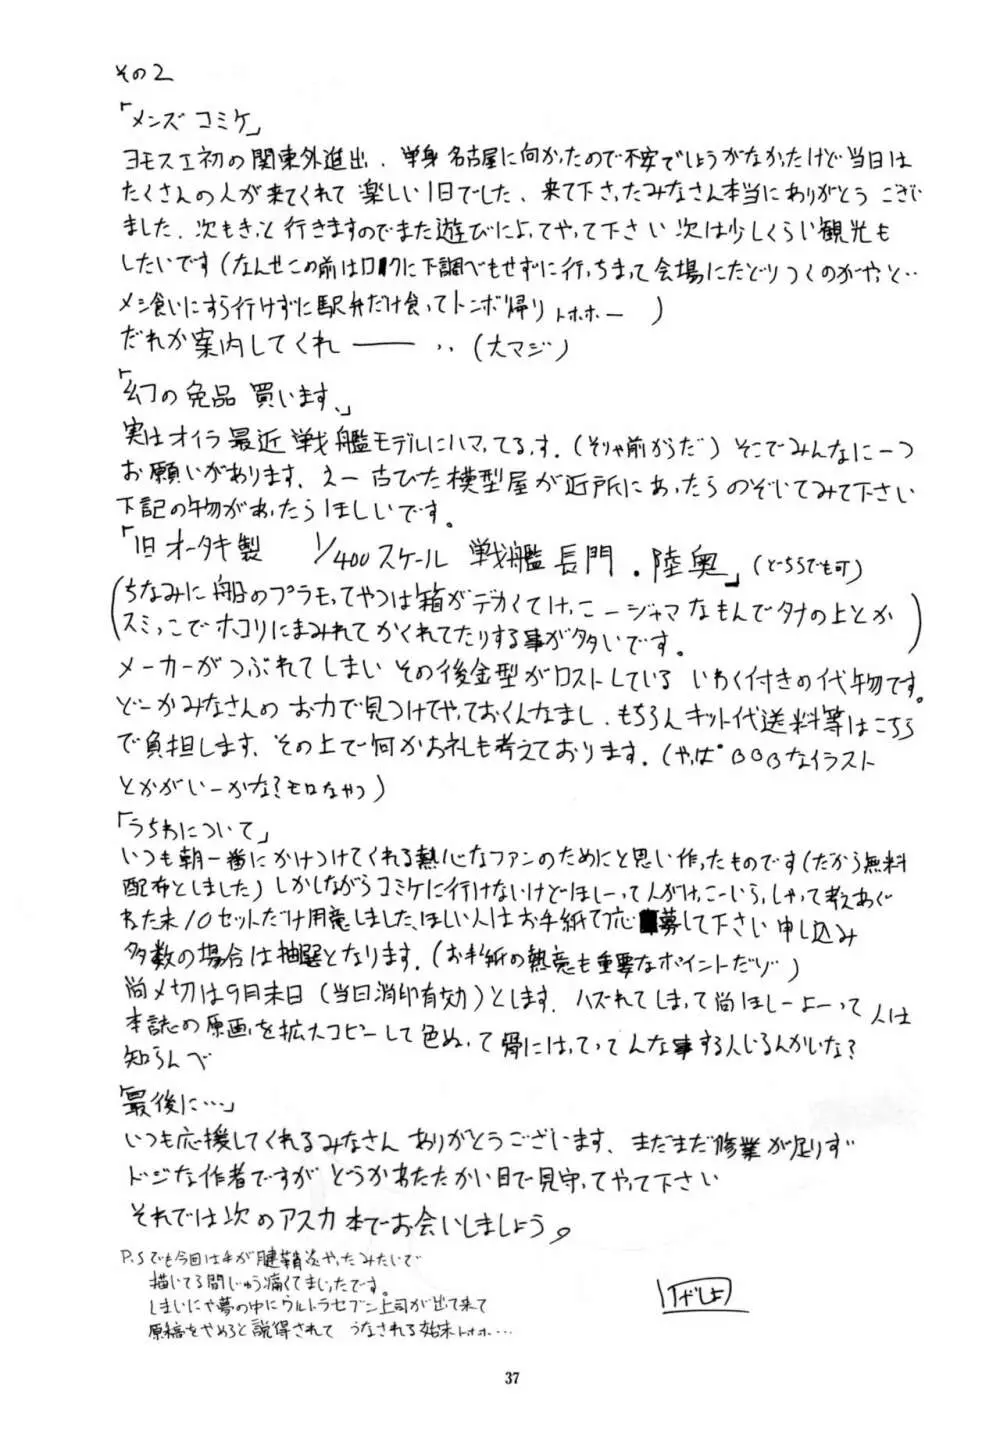 その2
「メンズコミケ」
ヨモスエ初の関東外進出、単身名古屋に向かったので不安でしょうがなかったけど当日は
たくさんの人が来てくれて楽しい1日でした、来て下さったみなさん本当にありがとうござい
ました、次もきっと行きますのでまた遊びによってやって下さい次は少しくらい観光も
したいです(なんせこの前はロクに下調べもせずに行っちまって会場にたどりつくのがやっと‥
メシ食いにすら行けずに駅弁だけ食ってトンボ帰りトホホー)
だれか案内してくれ――‥(大マジ)
「幻の免品買います、」
実はオイラ最近戦艦モデルにハマってるっす。(そりゃ前からだ)そこでみんなに一つ
お願いがあります、えー古びた模型屋が近所にあったらのぞいてみて下さい
下記の物があったらほしいです。
「旧オータキ製 1/400スケール 戦艦長門・陸奥」(どっちでも可)
(ちなみに船のプラモってやつは箱がデカくてけっこージャマなもんでタナの上とか
スミっこでホコリにまみれてかくれてたりする事が多いです。)
メーカーがつぶれてしまいその後金型がロストしているいわく付きの代物です。
どーかみなさんのお力で見つけてやっておくんなまし、もちろんキット代送料等はこちら
で負担します、その上で何かお礼も考えております。(やっぱBBBなイラスト
とかがいーかな?モロなやつ)
「うちわについて」
いつも朝一番にかけつけてくれる熱心なファンのためにと思い作ったものです(だから無料
配布としました)しかしながらコミケに行けないけどほしーって人がけっこーいらっしゃって考えあぐ
ねた末10セットだけ用意しました、ほしい人はお手紙で応募して下さい申し込み
多数の場合は抽選となります。(お手紙の熱意も重要なポイントだゾ)
尚〆切は9月末日(当日消印有効)とします、ハズれてしまって尚ほしーよーって人は
本誌の原画を拡大コピーして色ぬって骨にはってってんな事する人いるんかいな?
知らんべ
「最後に…」
いつも応援してくれるみなさんありがとうございます、まだまだ修業が足りず
ドジな作者ですがどうかあたたかい目で見守ってやって下さい
それでは次のアスカ本でお会いしましょう。
P.Sでも今回は手が腱鞘炎やったみたいで
描いてる間じゅう痛くてまいったです。
しまいにや夢の中にウルトラセブン上司が出て来て
原稿をやめろと説得されてうなされる始末トホホ…
37